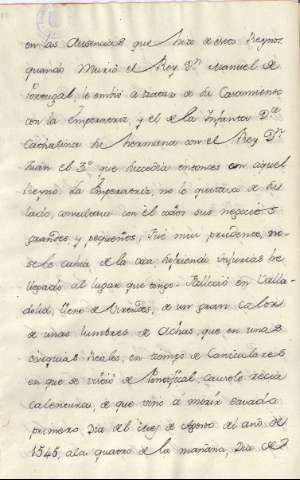 en las Ausencias que hizo de estos Reynos
quando Murió el Rey Dn. Manuel de
Portugal, le embió a tratar de su Casamiento
con la Emperatriz, y el de la Infanta Dª
Cathalina su hermana con el Rey Dn
Juan el 3º que subcedia entonces en aquel
Reyno. la Emperatriz, no le quitava de su
lado, consultava con el todos sus negocios
grandes y pequeños, Fué mui prudente, no
se le cahia de la voca, injurias he
llegado al lugar que tengo. Falleció en Valla-
dolid, lleno de virtudes, de un gran calor
de unas lumbres de Achas, que en unas
exequias Reales, en tiempo de Caniculares
en que se vistió de Pontifical, causole recia
calentura, de que vino a morir savado
primero Dia del mes de Agosto del año de
1545, a las quatro de la mañana, Dia de